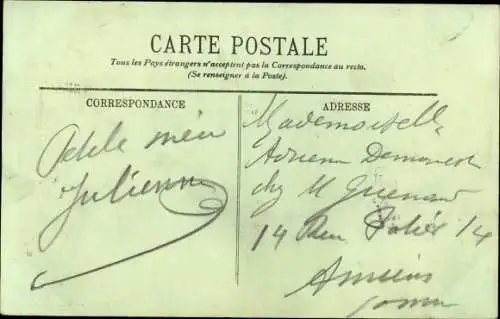 CARTE POSTALE
Tous les Pays étrangers n'acceptent pas la Correspondance au recto.
(Se renseigner à la Poste).
CORRESPONDANCE
ADRESSE
Julienne
Mademoiselle
chez M
14 Rue 14
Amiens
Somme